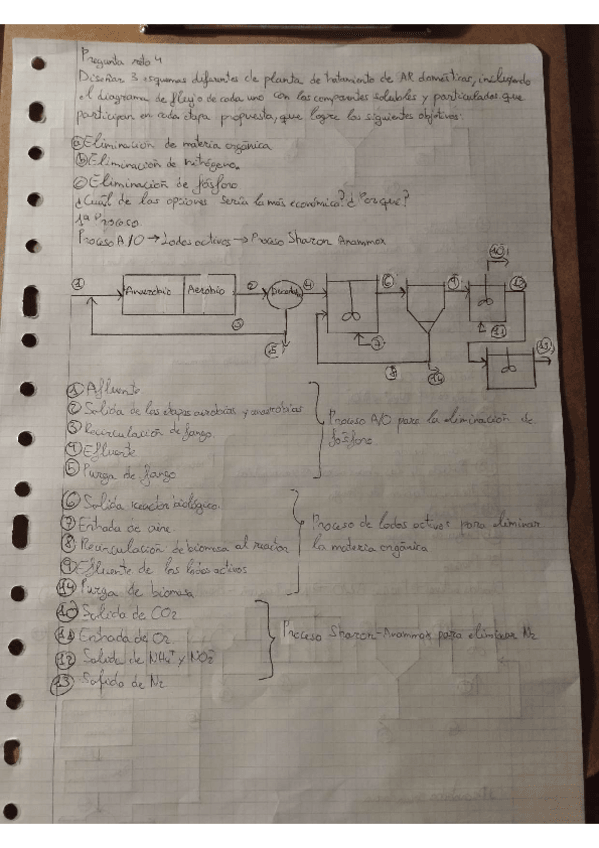 Pregunta reto 4
Diseñar 3 esquemas diferentes de planta de tratamiento de AR domésticas, incluyendo
el diagrama de flujo de cada uno con los componentes solubles y particulados que
participan en cada etapa propuesta, que logre los siguientes objetivos:
a) Eliminación de materia orgánica
b) Eliminación de nitrógeno.
c) Eliminación de fósforo
¿Cuál de las opciones sería la más económico? ¿Por qué?
1º Proceso.
Proceso A/O → Lodos activos → Proceso Sharon Anammox
1 Anaerobio Aerobio 2 Decantador 4 6 9 10 12
3 5 7 11 8 14 13
1 Afluente
2 Salida de las etapas aerobias y anaerobias
3 Recirculación de fango.
4 Efluente
5 Purga de fango
Proceso A/O para la eliminación de
fósforo
6 Salida reactor biológico.
7 Entrada de aire.
8 Recirculación de biomasa al reactor
9 Efluente de los lodos activos
14 Purga de biomasa
Proceso de lodos activos para eliminar
la materia orgánica
10 Salida de CO2
11 Entrada de O2
12 Salida de NH4+ y NO2-
13 Salida de N2
Proceso Sharon-Anammox para eliminar N2